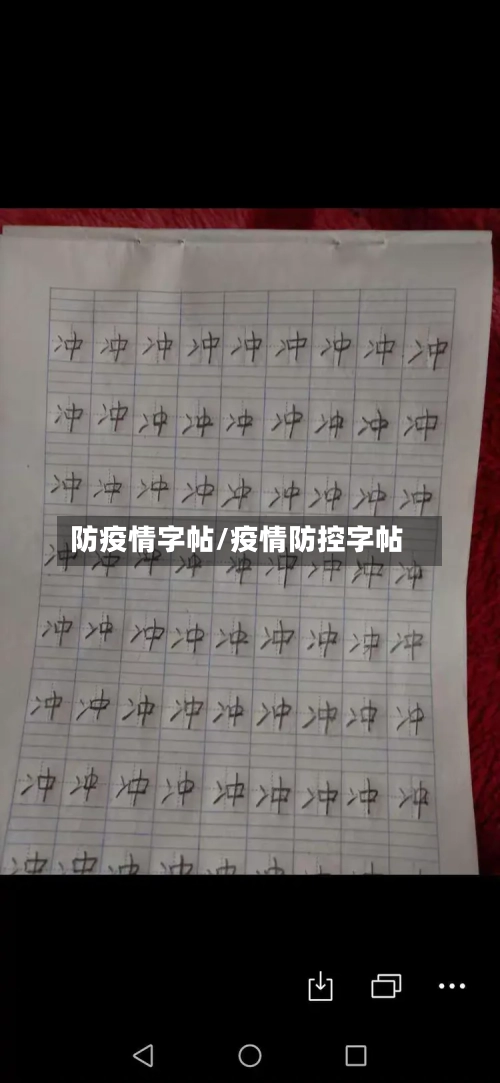 冲 冲 冲 冲 冲 冲 冲 冲 冲
冲 冲 冲 冲 冲 冲 冲 冲 冲
冲 冲 冲 冲 冲 冲 冲 冲 冲
防疫情字帖/疫情防控字帖
冲 冲 冲 冲 冲 冲 冲 冲 冲
冲 冲 冲 冲 冲 冲 冲 冲 冲
冲 冲 冲 冲 冲 冲 冲 冲 冲
冲 冲 冲 冲 冲 冲 冲 冲 冲
冲 冲 冲 冲 冲 冲 冲 冲